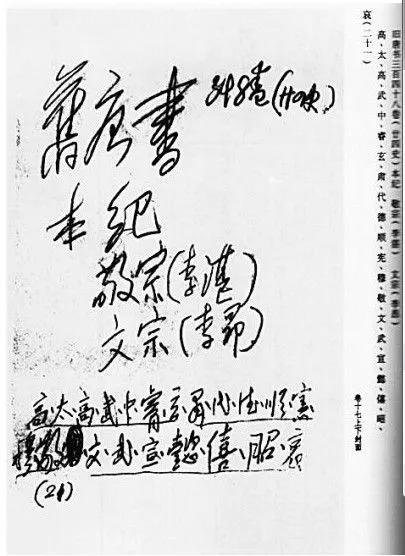 旧唐书三百四十八卷(廿四史)本纪 敬宗(李湛) 文宗(李昂)
高、太、高、武、中、睿、玄、肃、代、德、顺、宪、穆、敬、文、武、宣、懿、僖、昭、
哀(二十一)
卷十七上下封面
舊唐書 348卷(廿四史)
本紀
敬宗(李湛)
文宗(李昂)
高、太、高、武、中、睿、玄、肃、代、德、顺、憲
穆、敬、文、武、宣、懿、僖、昭、哀
(21)